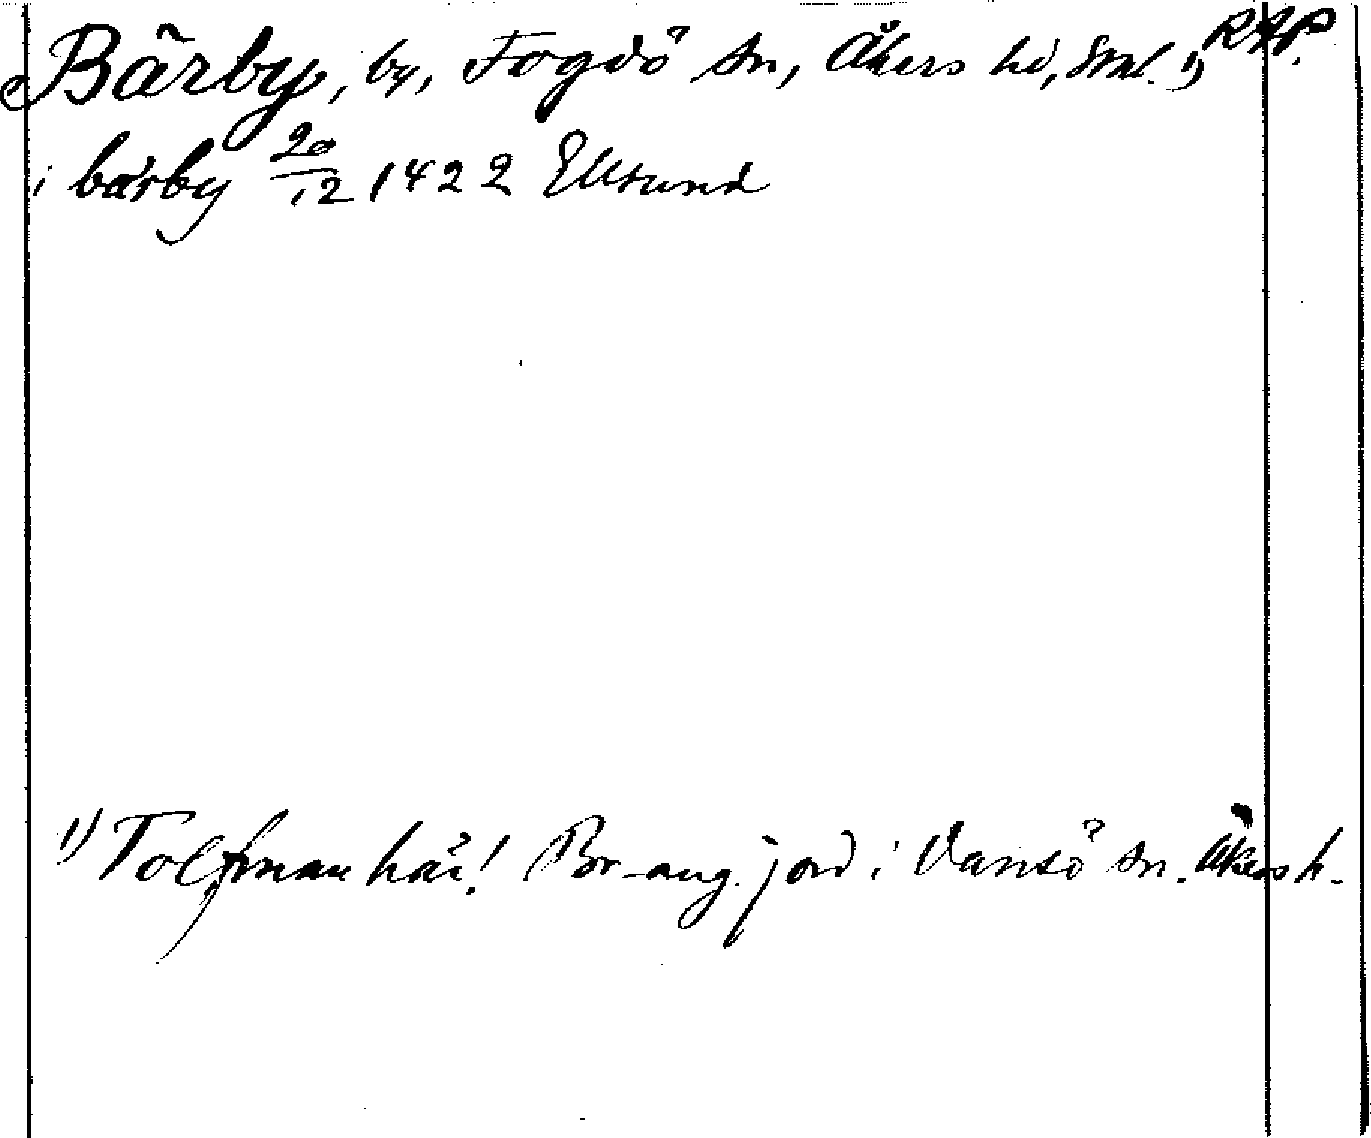 Bärby, by, Fogdö sn, Åkers hd, Sml. 1) RAP.
i bärby 20/12 1422 Ellsund
1) Tolfman här! Br-ang. jord i Vansö sn. Åkers h.